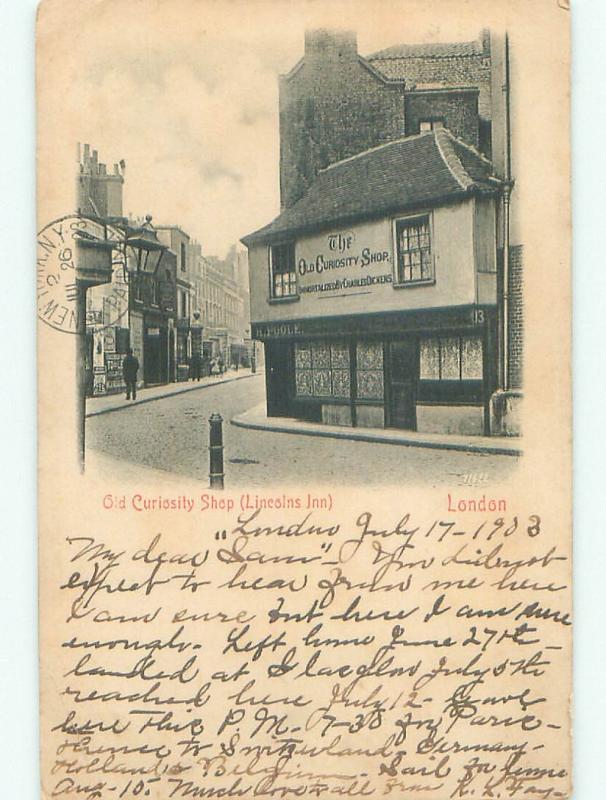 The
OLD CURIOSITY SHOP,
IMMORTALIZED BY CHARLES DICKENS
H. POOLE.
13
NEW YORK, N.Y.
Old Curiosity Shop (Lincolns Inn)
London
"London July 17-1903
"My dear Sam" - You did not
expect to hear from me here
I am sure but here I am sure
enough. Left home June 27th
landed at Glasglow July 5th
reached here July 12 - Leave
here this P.M. 7-30 for Paris -
thence to Switzerland - Germany -
Holland & Belgium. Sail for home
Aug-10. Much love to all from